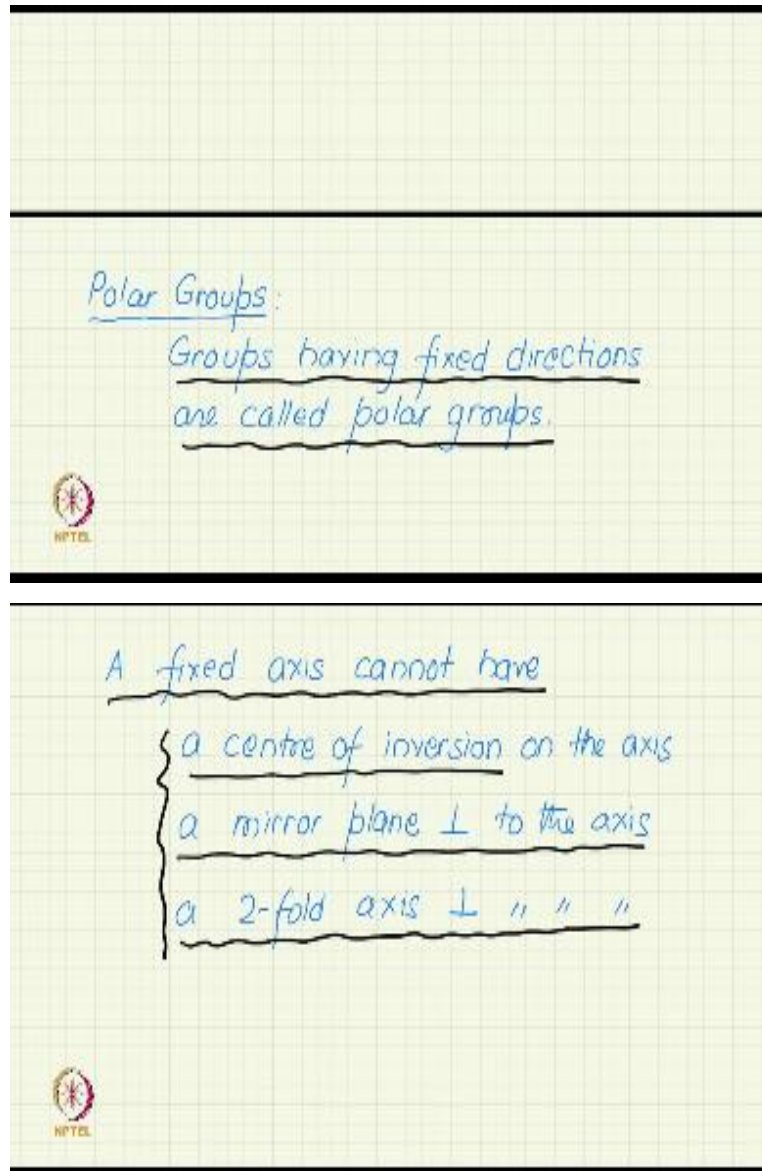 Polar Groups:
Groups having fixed directions
are called polar groups.
NPTEL
A fixed axis cannot have
a centre of inversion on the axis
a mirror plane ⊥ to the axis
a 2-fold axis ⊥ " " "
NPTEL